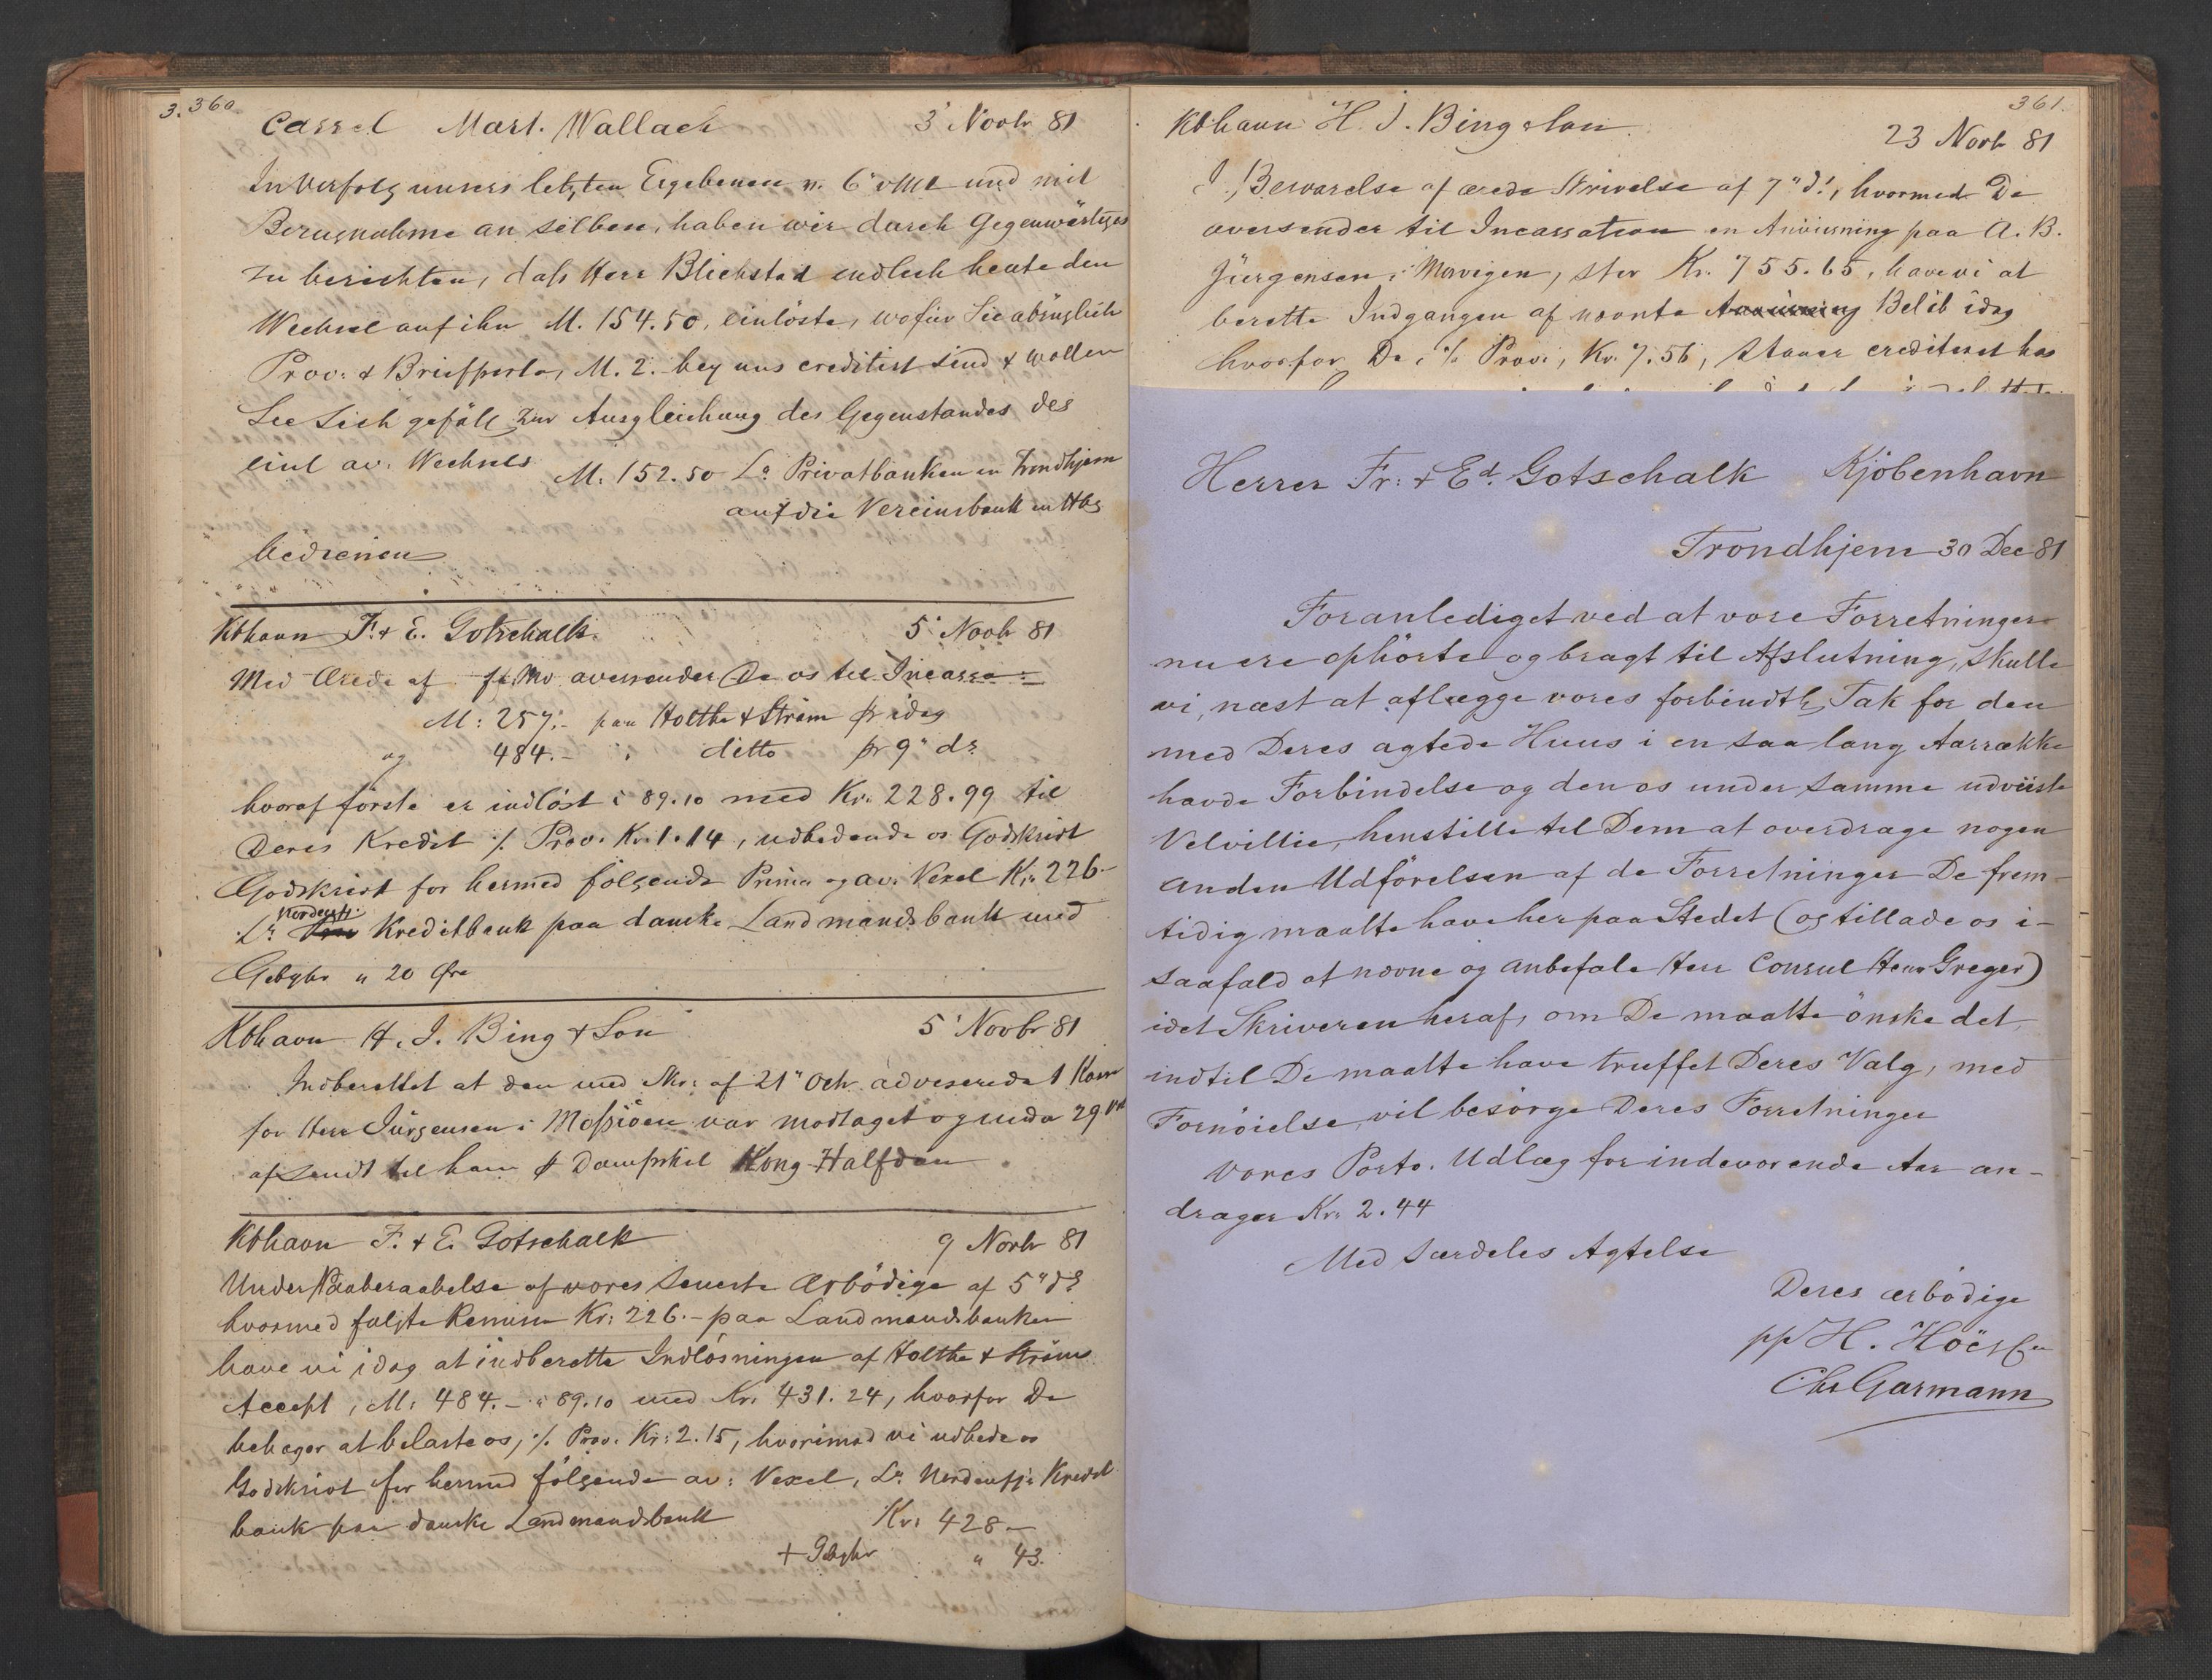 3. 360
Cassel Mart. Wallach 3' Novbr 81
In Verfolg unsers letzten Ergebenen v. 6" und mit
Bezugnahme an selben, haben wir durch Gegenwärtiges
zu berichten, dass Herr Blichstad endlich heute den
Wechsel auf ihn M. 154.50, einlöste, wofür Sie abzüglich
Prov: & Briefporto, M. 2. bey uns creditirt sind & wollen
Sie Sich gefäll zur Ausgleichung des Gegenstandes des
einl av. Wechsels M. 152.50 Privatbanken in Trondhjem
auf die Vereinsbank in Hbg
bedienen
Kbhavn F. & E. Gotschalk. 5' Novbr 81
Med Ærede af oversender De os til Incasso
M: 257.- paa Holthe & Ström pr idag
og 484.- " ditto pr 9" ds
hvoraf förste er indlöst à 89.10 med Kr. 228.99 til
Deres Kredit ./. Prov. Kr. 1.14, udbedende os Godskrivt
Godskrivt for hermed følgende Prima og av. Vexel Kr. 226-
Nordenfj.
Kreditbank paa danske Landmandsbank med
Gebyhr " 20 Øre
Kbhavn H. J. Bing & Son 5' Novbr 81
Indberettet at den med Skr: af 21" Octr adviserede 1 Kasse
for Herr Jürgensen i Mosjöen var modtaget og under 29
afsendt til ham pr Dampskib Kong Halfdan
Kbhavn F. & E. Gotschalk 9 Novbr 81
Under Paaberaabelse af vores seneste Ærbödige af 5" ds
hvormed fulgte Remisse Kr: 226.- paa Landmandsbanken
have vi idag at indberette Indlösningen af Holthe & Ströms
Accept, M: 484.- à 89.10 med Kr. 431.24, hvorfor De
behager at belaste os, ./. Prov. Kr: 2.15, hvorimod vi udbede os
Godskrivt for hermed fölgende av: Vexel, Nordenfj. Kredit
bank paa danske Landmandsbank Kr: 428-
+ Gebyhr " 43.
361.
Kbhavn H. J. Bing & Son 23 Novbr 81
I Besvarelse af ærede Skrivelse af 7" ds, hvormed De
oversender til Incassation en Anviisning paa A. B.
Jürgensen, stor Kr. 755.65, have vi at
berette Indgangen af nævnte Anviisning Beløb idag
hvorfor De, ./. Provi, Kr. 7.56, staaer crediteret hos
Herrer Fr: & Ed. Gotschalk Kjöbenhavn
Trondhjem 30 Dec 81
Foranlediget ved at vore Forretninger
nu ere ophörte og bragt til Afslutning, skulle
vi, næst at aflægge vores forbindtl. Tak for den
med Deres agtede Huus i en saa lang Aarrække
havde Forbindelse og den os under samme udviiste
Velvillie, henstille til Dem at overdrage nogen
Anden Udförelsen af de Forretninger De frem-
tidig maatte have her paa Stedet (og tillade os i-
saafald at nævne og anbefale Herr Consul Henr Greger)
idet Skriveren heraf, om De maatte önske det,
indtil De maatte have truffet Deres Valg, med
Fornöielse vil besörge Deres Forretninger
Vores Porto. Udlæg for indeværende Aar an-
drager Kr. 2.44
Med særdeles Agtelse
Deres ærbödige
pp H.
Chr Garmann